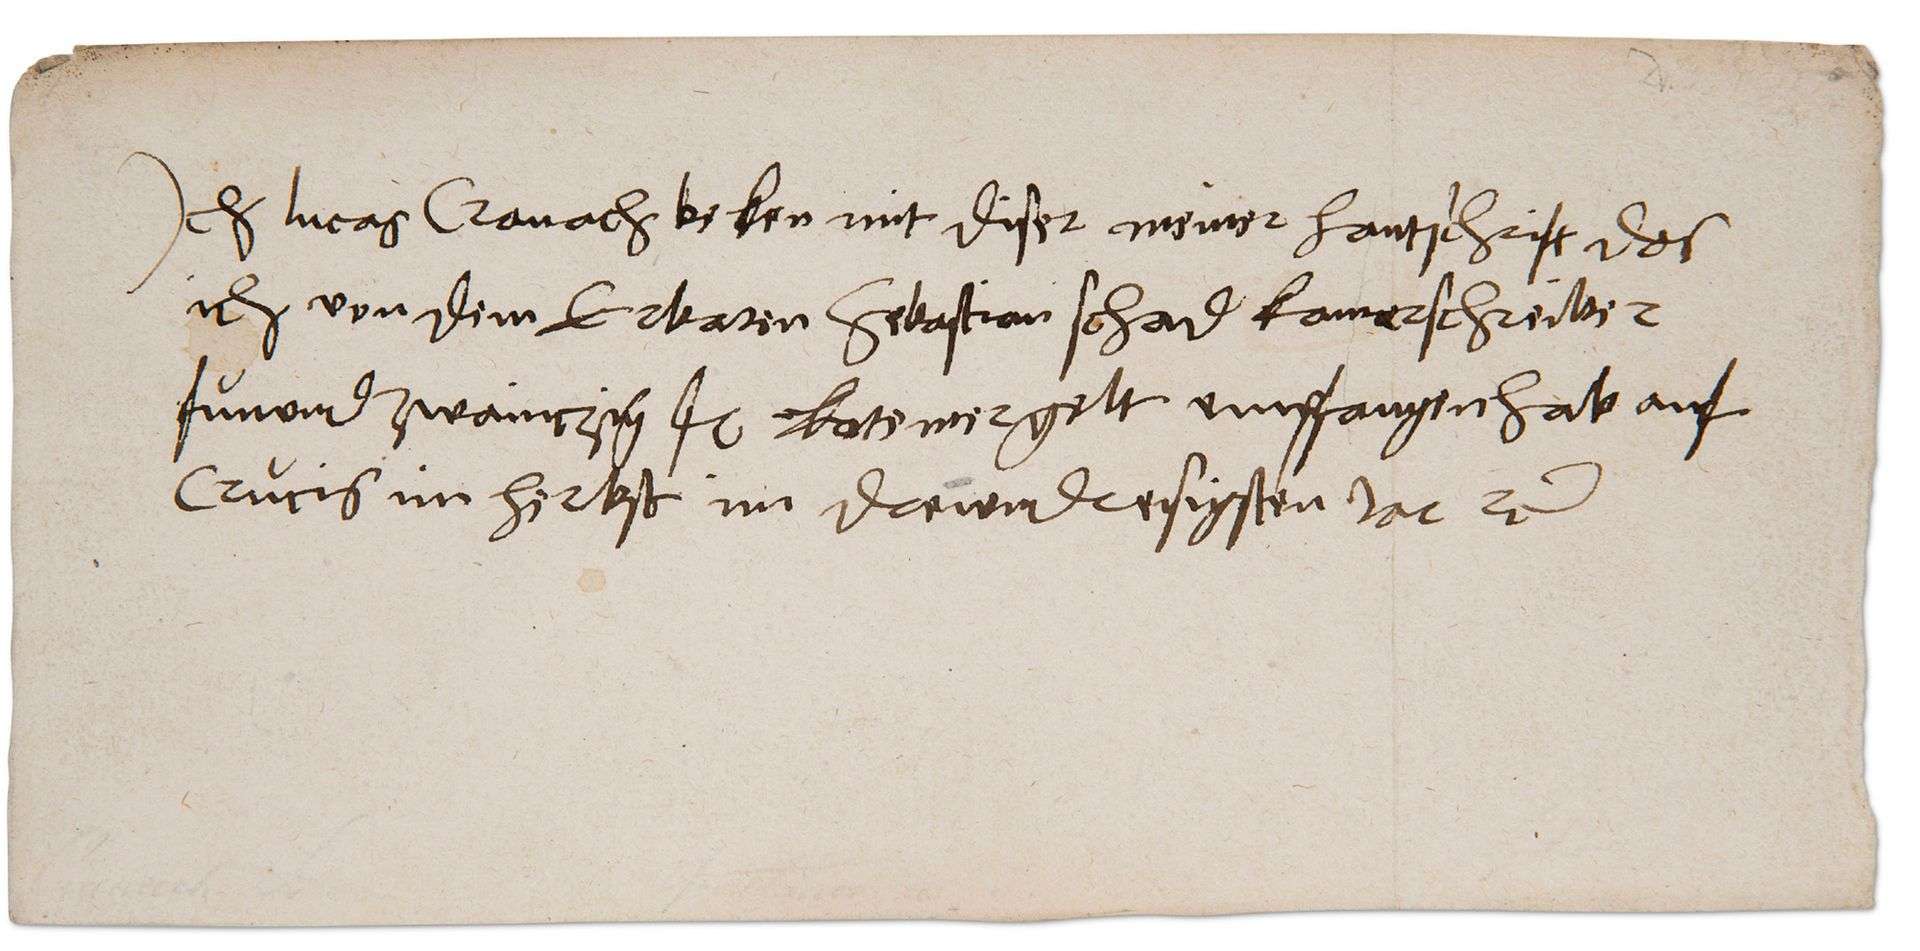 Ich lucas Cranach beken mit diser meiner hantschrift das
ich von dem Erbaren Sebastian schad kamerschreiber
funvnd zwainczig fl kotemergelt empfangen hab auf
Crucis im herbst im drewvndresigsten Jar rc